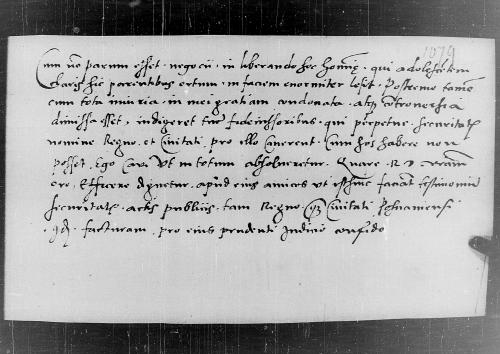 1079
Cum vero parum esset negocii in liberando hoc homine qui adolescentem
claris hic parentibus ortum in faciem enormiter lesit. Postremo tamen
cum tota iniuria in mei gratiam condonata atque controversia
dimissa esset, indigeret tunc fideiussoribus qui perpetue securitatis
nomine Regno et Civitati pro illo caverent. Cum hos habere non
posset, Ego cavi ut in totum absolveretur. Quare R. D. Vestram
oro, Efficere dignetur apud eius amicos ut istinc faciat testimonium
securitatis actis publicis tam Regno quam Civitati
quod facturam pro eius prudenti Iudicio confido